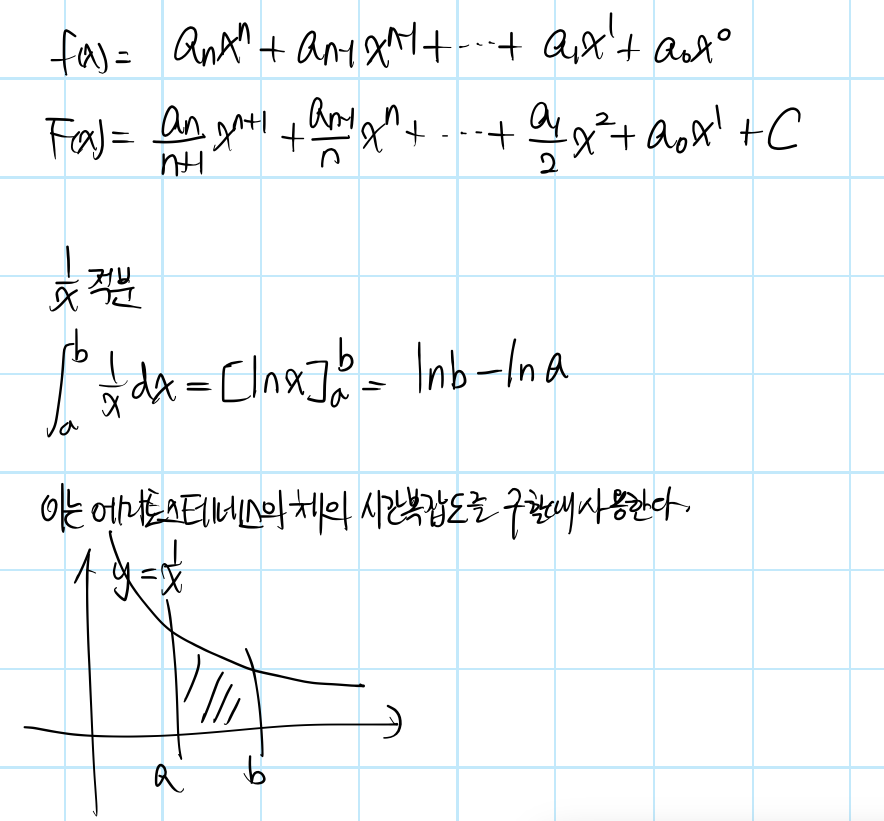 f(x) = aₙxⁿ + aₙ₋₁xⁿ⁻¹ + ⋯ + a₁x¹ + a₀x⁰
F(x) = aₙ/(n+1) xⁿ⁺¹ + aₙ₋₁/n xⁿ + ⋯ + a₁/2 x² + a₀x¹ + C
1/x 적분
∫ₐᵇ 1/x dx = [lnx]ₐᵇ = lnb - ln a
이는 에라토스테네스의 체의 시간복잡도를 구할때 사용한다.
y = 1/x
a b